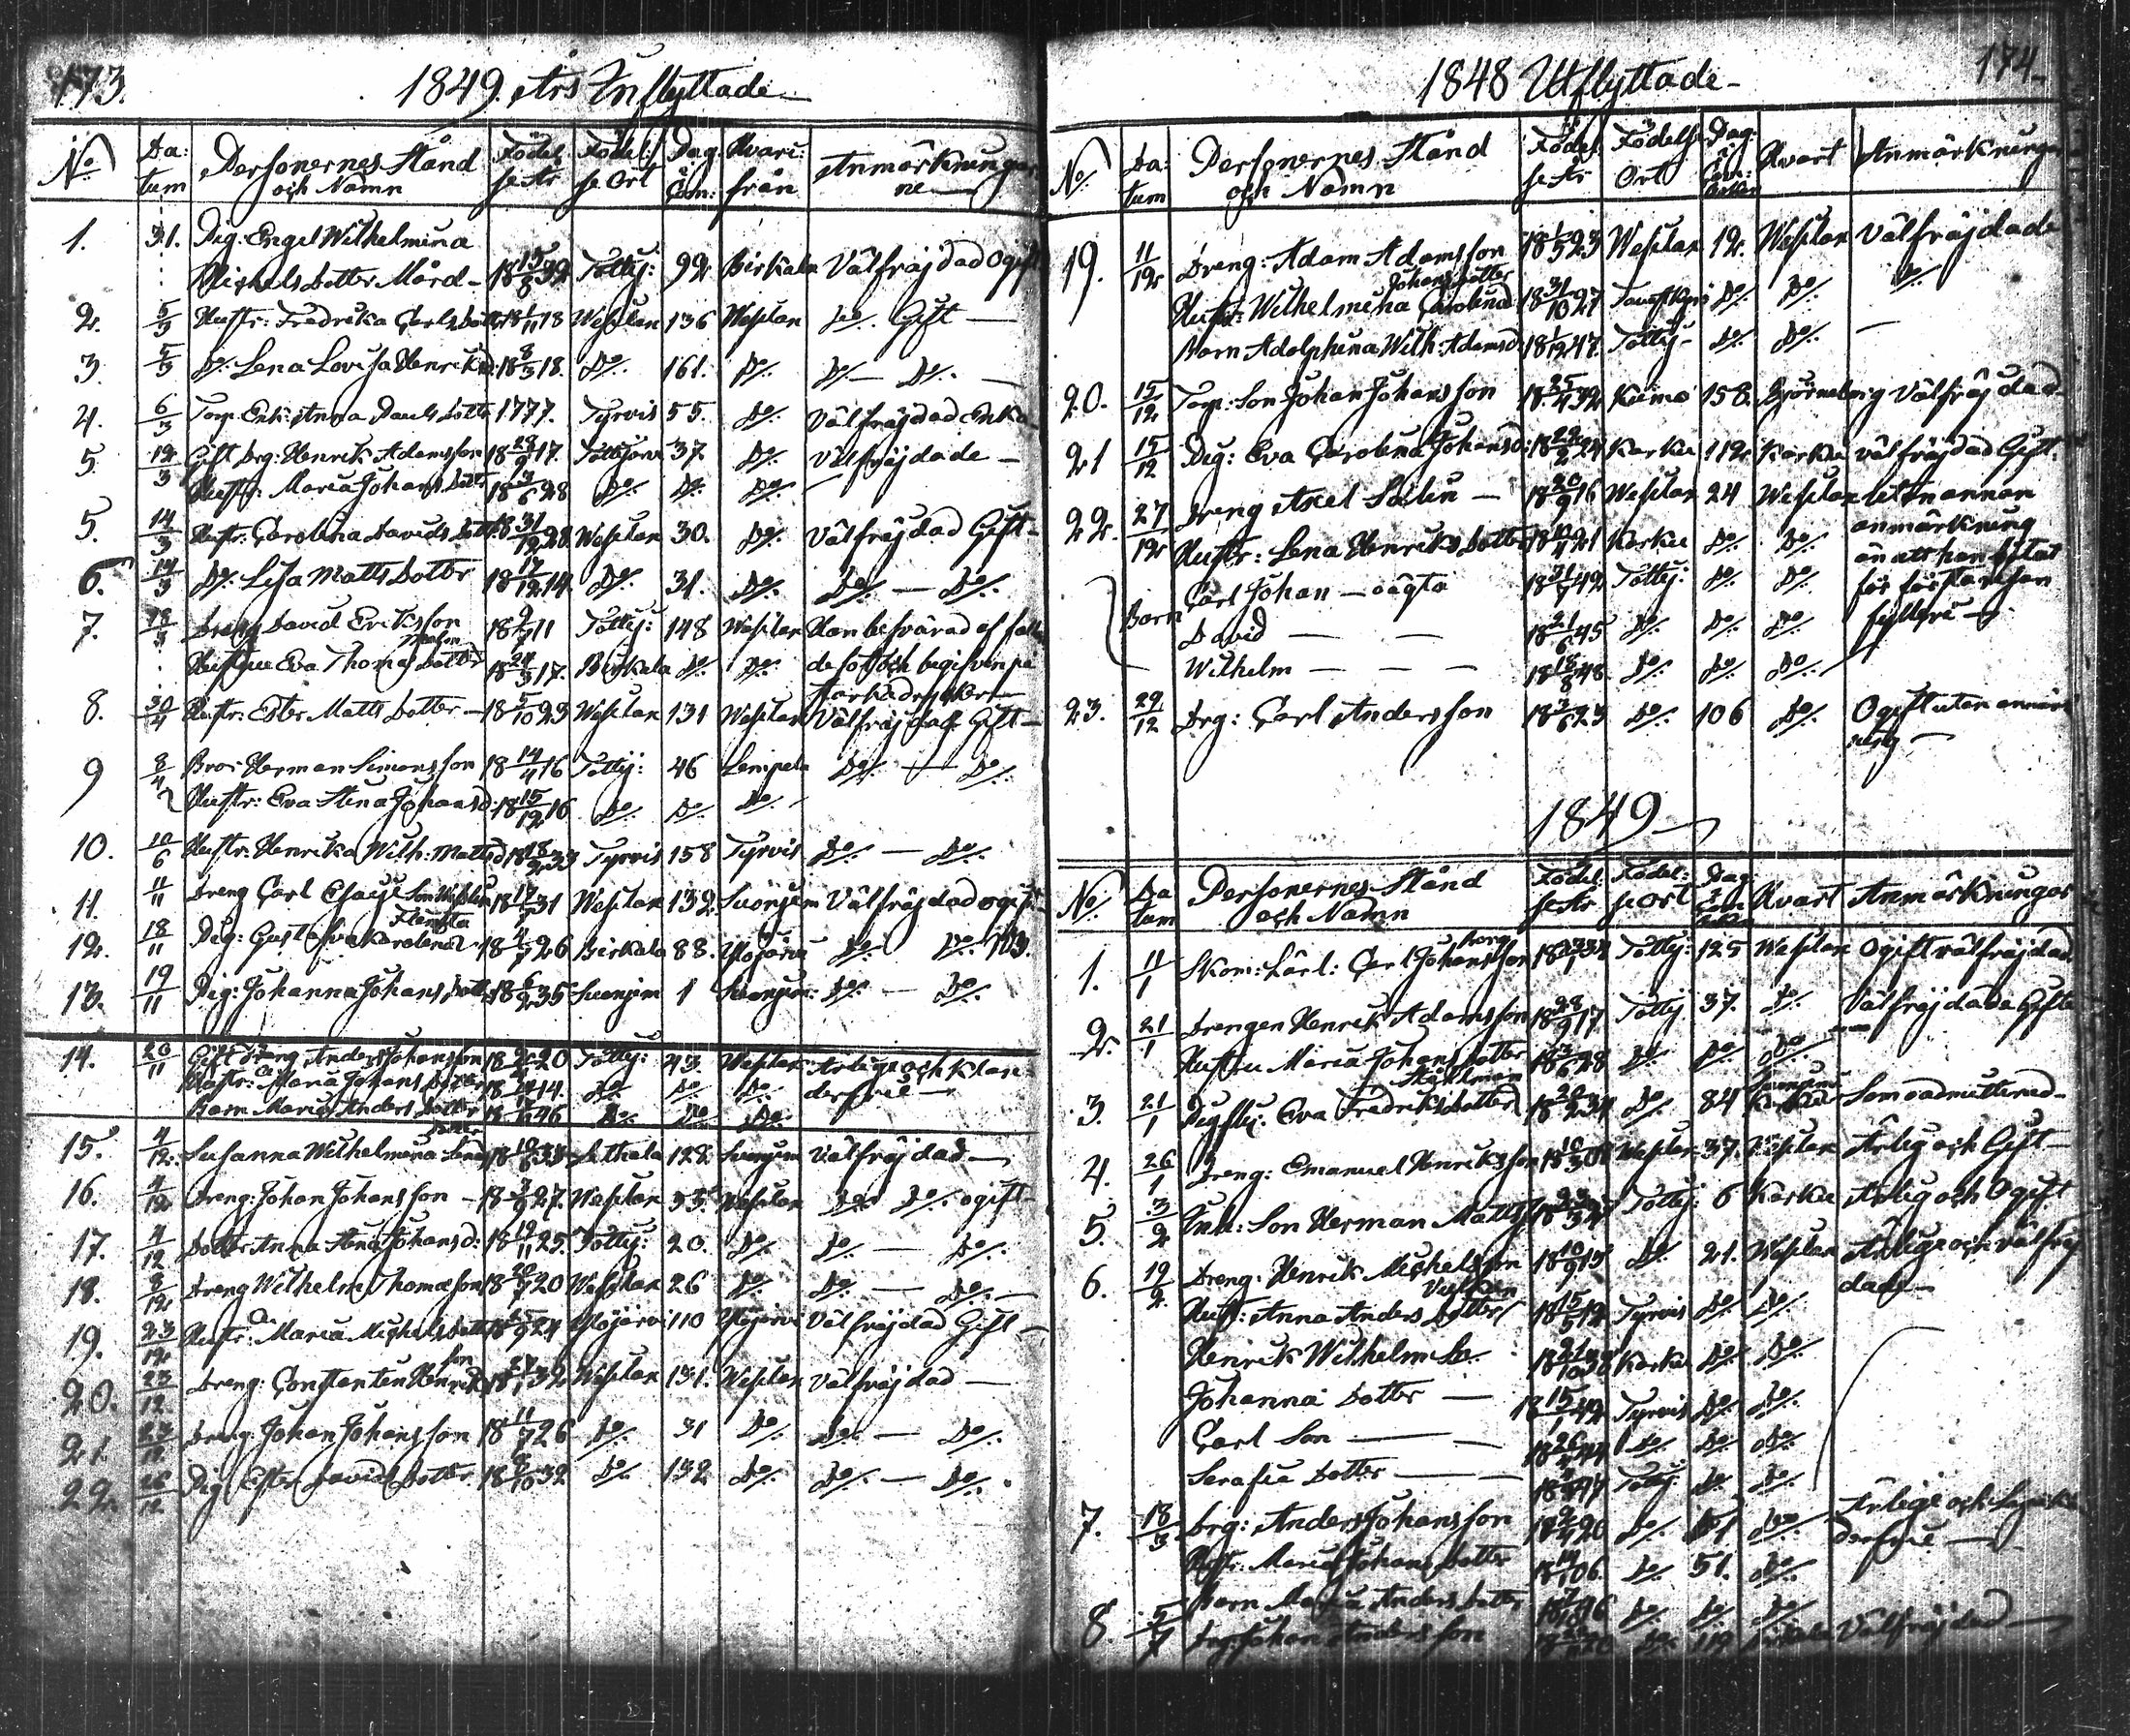 173.
1849. Års Inflyttade
No Da:tum Personernes Stånd och Namn Födelse År Födelse Ort Pag: i Com: Hvarifrån Anmärkningarne
1. 31. Pig: Engel Wilhelmina
Michelsdotter Mård 18 15/8 32 Tottij: 92 Birkala Välfräjdad Ogift
2. 5/3 Hustr: Fredrika Carlsdotter 18 1/11 18 Wesilax 136 Wesilax Do Gift
3. 5/3 Do Lena Lovisa Henriksd: 18 8/3 18. Do 161. Do Do — Do
4. 6/3 Torp. Enk: Anna Paulsdotter 1777. Tyrvis 55. Do Välfräjdad Enka
5 12/3 Gift Drg: Henrik Adamsson 18 28/9 17 Tottijärvi 37 Do Välfräjdade
Hustr: Maria Johansdotter 18 3/6 28 Do Do Do
5. 14/3 Hustr: Carolina Davidsdotter 18 31/12 28 Wesilax 30. Do Välfräjdad Gift
6. 14/3 Do Lisa Mattsdotter 18 17/12 14. Do 31. Do Do — Do
7. 18/3 Dreng David Eriksson 18 9/7 11 Tottij: 148 Wesilax Han besvärad af
Hustrue Eva Thomasdotter 18 24/3 17. Birkala Do Do begifven på
starka drycker
8. 30/4 Hustr: Ester Mattsdotter 18 5/10 23 Wesilax 131 Wesilax Välfräjdad Gift
9 8/4 Bror Herman Simonsson 18 14/4 16 Tottij: 46 Lempela Do — Do
Hustr: Eva Stina Johansd: 18 15/12 16 Do Do Do
10. 10/6 Hustr: Henrika Wilh: Mattsd 18 18/2 33 Tyrvis 158 Tyrvis Do — Do
11. 11/11 Dreng Carl Esaije Son 18 17/7 31 Wesilax 132 Suonjem Välfräjdad ogift
12. 18/11 Pig: Gustafva Karolina 18 4/7 26 Birkala 88. Ylöjärvi Do Do 103.
13. 19/11 Pig: Johanna Johansdotter 18 6/2 35 Suonjim 1 Suonjem: Do — Do
14. 20/11 Gift Dreng Anders Johansson 18 2/4 20 Tottij: 43. Wesilax Ärlige och klan-
Hustr: Maria Johansdotter 18 14. Do Do Do derfrie
Barn Maria Andersdotter 18 46 Do Do Do
15. 4/12. Susanna Wilhelmina 18 18/6 33 Lethala 128 Suonjem Välfräjdad
16. 4/12 Dreng: Johan Johansson 18 3/9 27. Wesilax 53. Wesilax Do Do ogift
17. 4/12 Dotter Anna Stina Johansd: 18 19/11 25. Tottij: 20. Do Do — Do
18. 8/12 Dreng Wilhelm Thomasson 18 20 Wesilax 26 Do Do — Do
19. 23/12 Hustr: Maria Michelsdotter 18 24 Ylöjärvi 110 Ylöjärvi Välfräjdad Gift
20. 23/12. Dreng: Constantin Henriksson 18 32 Wesilax 131. Wesilax Välfräjdad
21. 23/12 Dreng: Johan Johansson 18 11/7 26 Do 31 Do Do — Do
22. 26/12 Pig Ester Davidsdotter 18 32 Do 132 Do Do — Do
174
1848 Utflyttade
No Da:tum Personernes Stånd och Namn Födelse År Födelse Ort Pag: i Com: boken Hvart Anmärkningar
19. 11/12 Dreng: Adam Adamsson 18 1/5 23 Wesilax 12. Wesilax Välfräjdade
Hustr: Wilhelmina Carolina Johansdotter 18 31/10 27 Tavastkyro Do Do Do
Barn Adolphina Wilh: Adamsd 18 1/12 47. Tottij Do Do —
20. 15/12 Torp: Son Johan Johansson 18 25/4 32 Kumo 158. Björneborg Välfräjdad
21 15/12 Pig: Eva Carolina Johansd: 18 29/2 24 Karku 112 Karku välfräjdad Gift.
22. 27/12 Dreng Axel Salin 18 20/9 16 Wesilax 24 Wesilax utan annan
Hustr: Lena Henriksdotter 18 21 Karku Do Do anmärkning
än att han bötat
Barn Carl Johan — oägta 18 31 42 Tottij: Do Do för första gån
David 18 21/6 45 Do Do Do fylleri
Wilhelm 18 18/8 48 Do Do Do
23. 29/12 Drg: Carl Andersson 18 3/6 23 Do 106 Do Ogift utan anmärk
ning
1849
No Da:tum Personernes Stånd och Namn Födelse År Födelse Ort Pag: i Com: boken Hvart Anmärkningar
1. 11/1 Skom: Lärl: Carl Johansson 18 34 Tottij: 125 Wesilax Ogift välfräjdad
2. 21/1 Drengen Henrik Adamsson 18 28/9 17 Tottij 37. Do Välfräjdade Gifte
Hustru Maria Johansdotter 18 3/6 28 Do Do Do
3. 21/1 Pigfl: Eva Fredriksdotter Ståhlman 18 34 Do 84 Karku Som oadmitterad
4. 26/1 Dreng: Emanuel Henriksson 18 10/3 Wesilax 37. Wesilax Ärlig och Gift
5. 3/2 Inh: Son Herman Mattss 18 Tottij: 6 Karku Ärlig och Ogift
6. 19/2 Dreng: Henrik Michelsson 18 10/9 15 Do 21. Wesilax Ärlige och välfräj
Hust: Anna Andersdotter 18 15/5 12 Tyrvis Do Do dade
Henrik Wilhelm So. 18 21/10 38 Karku Do Do
Johanna Dotter 18 15/1 42 Tyrvis Do Do
Carl Son 18 26 44 Do Do Do
Serafie Dotter 18 47 Tottij Do Do
7. 18/3 Drg: Anders Johansson 18 2/4 20 Do 51 Do Ärlige och
Hustr: Maria Johansdotter 18 14/1 06. Do 51. Do derfrie
Barn Maria Andersdotter 18 46 Do Do Do
8. 5/7 Drg: Johan Andersson 18 20 Do 119 Välfräjdad